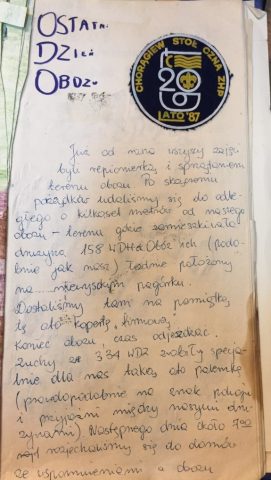 OSTATNI
DZIEŃ
OBOZU
CHORĄGIEW STOŁECZNA ZHP
20
LATO '87
Już od rana wszyscy zajęli
byli repionierką i sprzątaniem
terenu obozu. Po skończeniu
porządków udaliśmy się do odle-
głego o kilkaset metrów od naszego
obozu - terenu gdzie zamieszkiwała
drużyna 158 WDH. Obóz ich (podo-
bnie jak nasz) ładnie położony
na
pagórku.
Dostaliśmy tam na pamiątkę
tę oto kopertę, firmową.
koniec obozu, czas odjeżdżać.
Zuchy z 334 WDZ zrobiły specja-
lnie dla nas taką oto palemkę
(prawdopodobnie na znak pokoju
i przyjaźni między naszymi dru-
żynami). Następnego dnia około 7
rozjechaliśmy się do domów
ze wspomnieniami z obozu